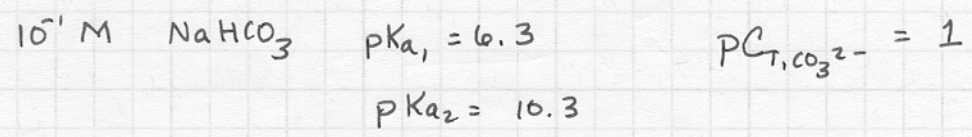 10⁻¹ M NaHCO₃ pKa₁ = 6.3 pC_T,CO₃²⁻ = 1
pKa₂ = 10.3